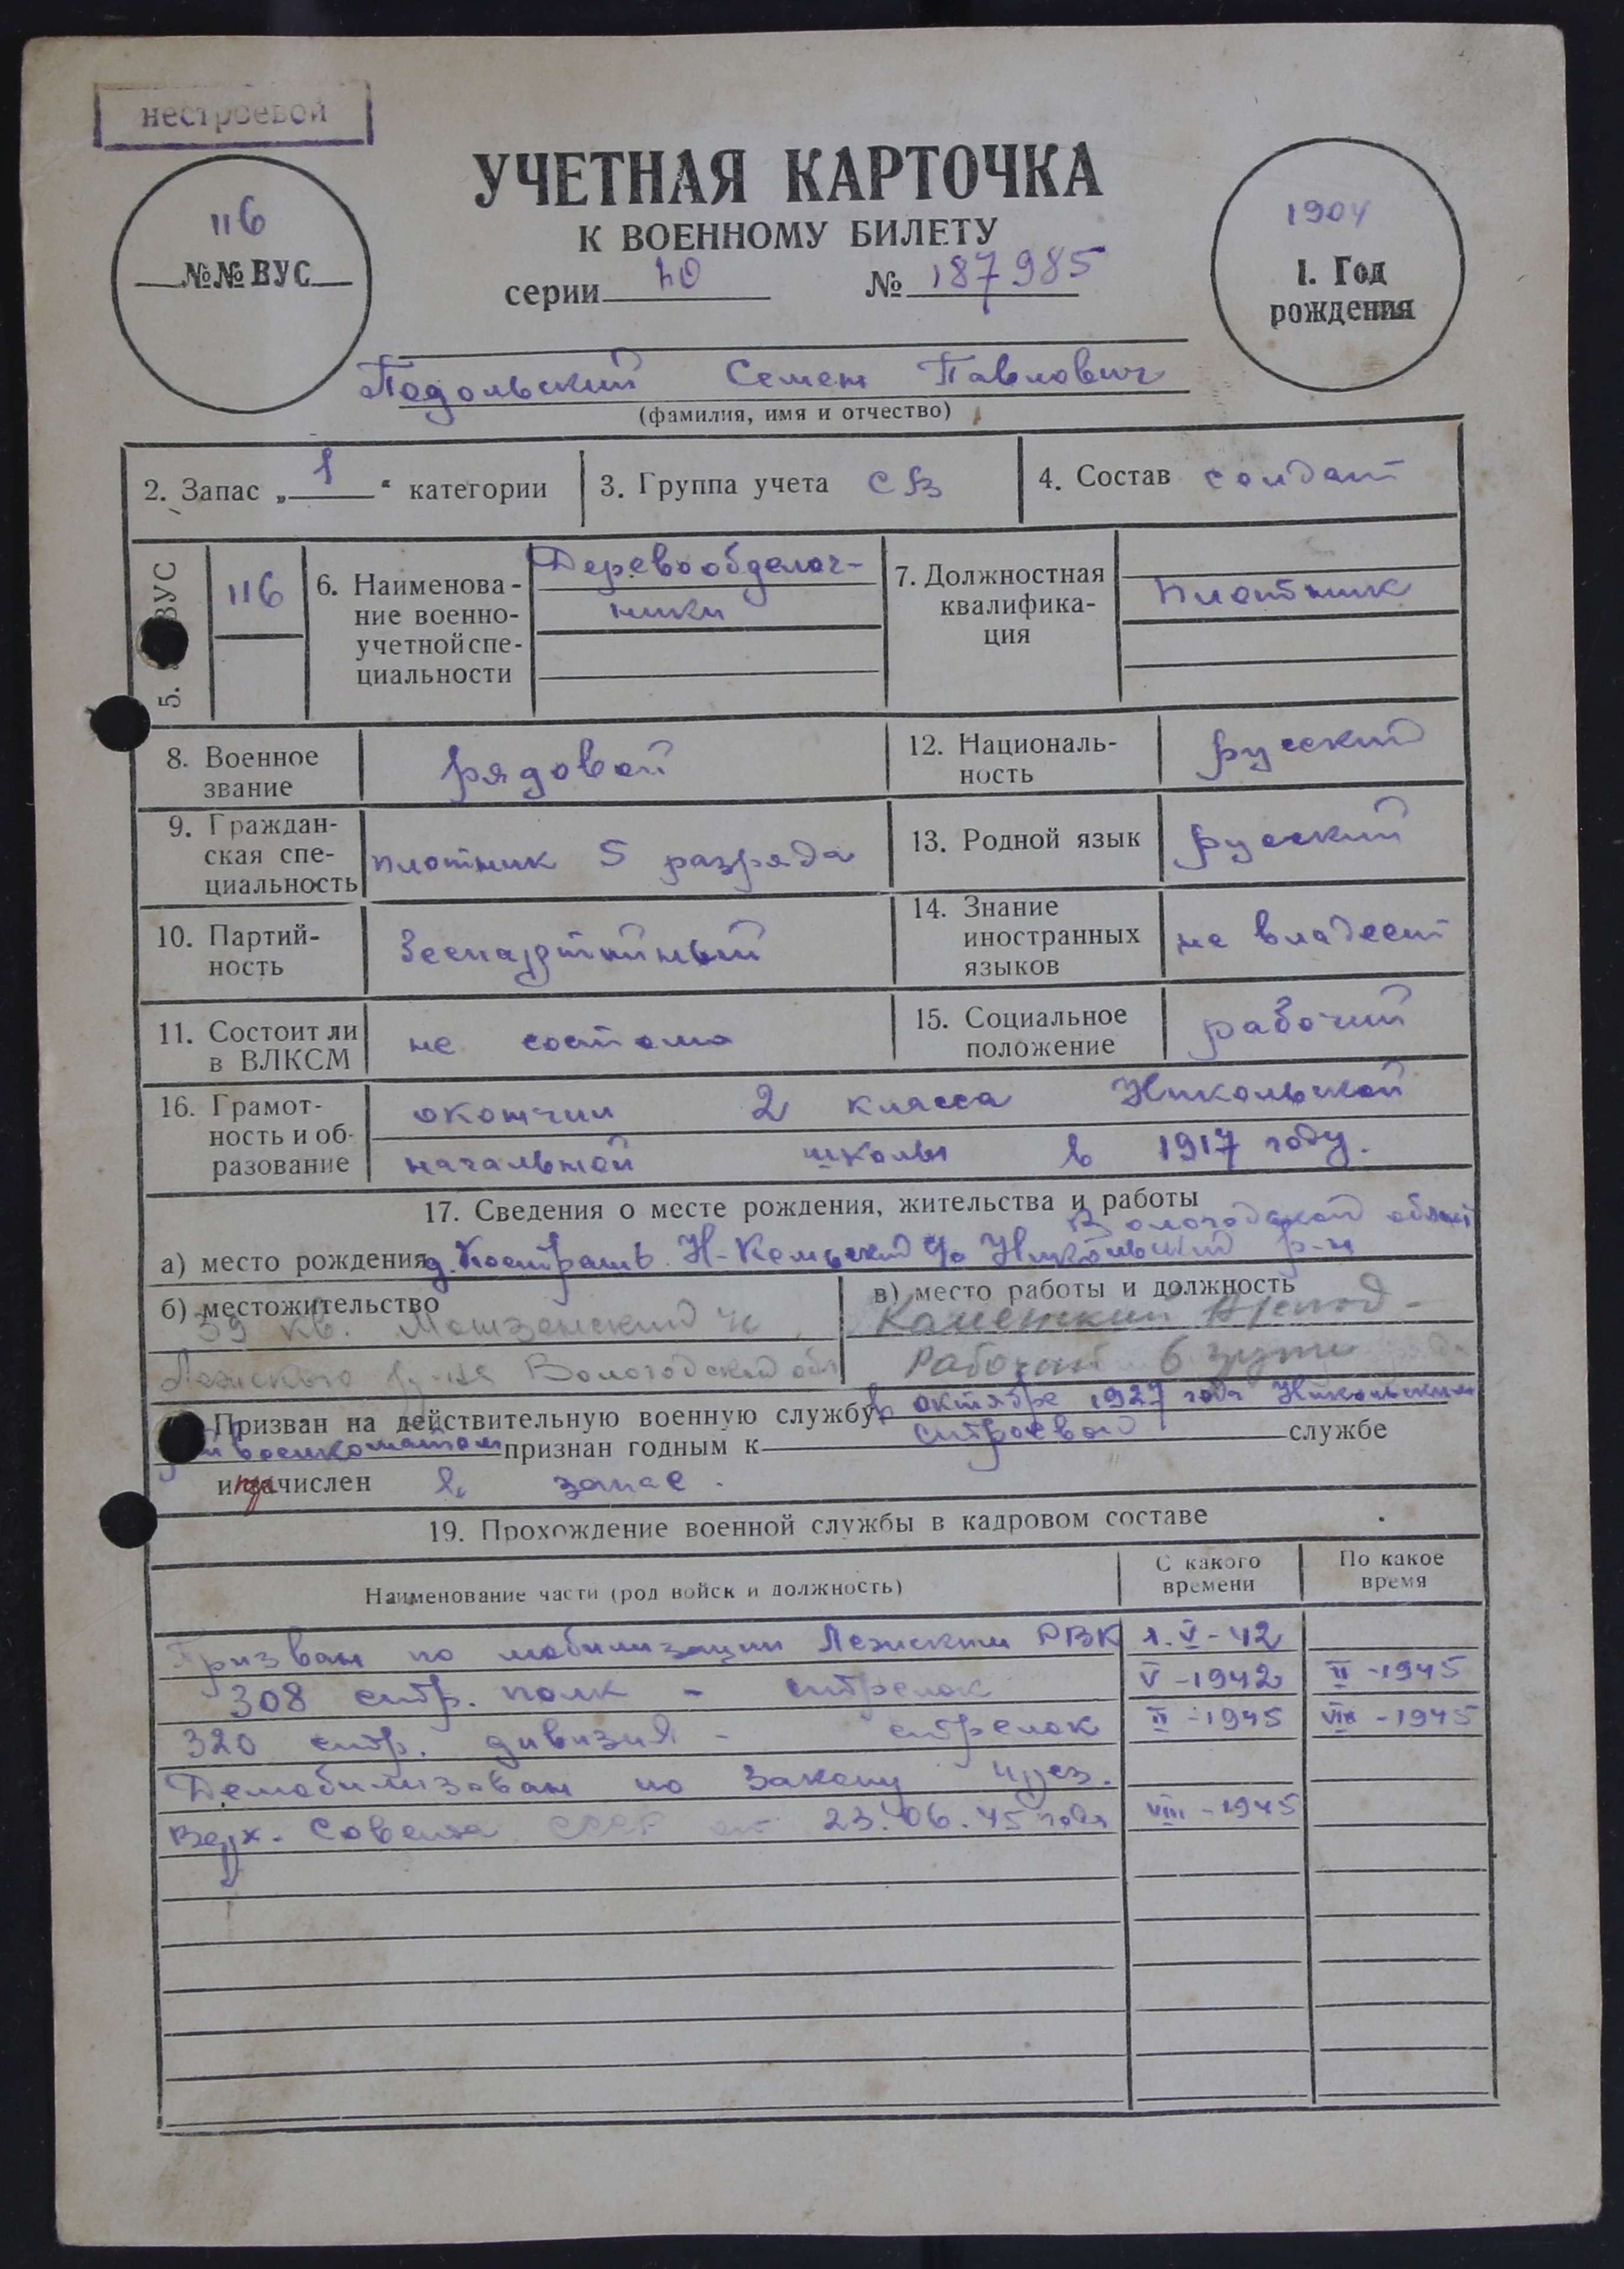 нестроевой
116
№№ ВУС
УЧЕТНАЯ КАРТОЧКА
К ВОЕННОМУ БИЛЕТУ
серии № 187985
1904
1. Год
рождения
Подольский Семен Павлович
(фамилия, имя и отчество)
2. Запас „ 1 “ категории
3. Группа учета СВ
4. Состав солдат
5. ВУС
116
6. Наименова-
ние военно-
учетной спе-
циальности
Деревообделоч-
ники
7. Должностная
квалифика-
ция
плотник
8. Военное
звание
рядовой
12. Националь-
ность
русский
9. Граждан-
ская спе-
циальность
плотник 5 разряда
13. Родной язык
русский
10. Партий-
ность
беспартийный
14. Знание
иностранных
языков
не владеет
11. Состоит ли
в ВЛКСМ
не состоит
15. Социальное
положение
рабочий
16. Грамот-
ность и об-
разование
окончил 2 класса Никольской
начальной школы в 1917 году.
17. Сведения о месте рождения, жительства и работы
Вологодской област
а) место рождения д. Н-Кемьский с/с Никольский р-н
б) местожительство
39 кв. Мошзенский
Лежского р-на Вологодской обл
в) место работы и должность
Рабочий
Призван на действительную военную службу в октябре 1927 года Никольским
военкоматом признан годным к строевой службе
и зачислен в запас.
19. Прохождение военной службы в кадровом составе
Наименование части (род войск и должность)
С какого
времени
По какое
время
Призван по мобилизации Лежским РВК 1.V-42
308 стр. полк - стрелок V-1942 II-1945
320 стр. дивизия - стрелок II-1945 VIII-1945
Демобилизован по Закону през.
Верх. Совета СССР от 23.06.45 года VIII-1945